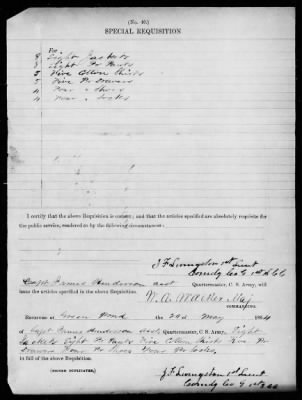 (No. 40.)
SPECIAL REQUISITION
For
8 Eight Jackets
8 Eight Pr Pants
5 Five Cotton Shirts
5 Five Pr Drawers
4 Four " Shoes
4 Four " Socks
I certify that the above Requisition is correct; and that the articles specified are absolutely requisite for
the public service, rendered so by the following circumstances:
J F Livingston 1st Lieut
Comdg Co G 1st
Capt James Henderson asst Quartermaster, C. S. Army, will
issue the articles specified in the above Requisition.
W. A. Walker Maj
COMMANDING.
RECEIVED at Green Pond the May 1864
of Capt James Henderson asst Quartermaster, C. S. Army, Eight
Jackets Eight Pr Pants Five Cotton Shirts Five Pr
Drawers Four Pr Shoes Four Pr Socks,
in full of the above Requisition.
(SIGNED DUPLICATES.)
J F Livingston 1st Lieut
Comdg Co G 1st